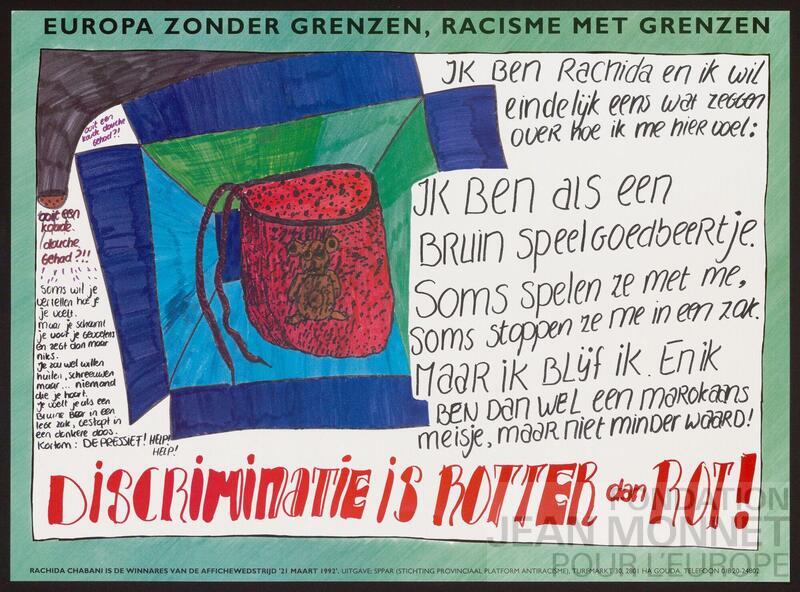 EUROPA ZONDER GRENZEN, RACISME MET GRENZEN
JK BEN RACHIDA en ik wil
eindelijk eens wat zeggen
OVER hoe ik me hier voel:
JK BEN als een
BRUIN SPEELGOEDBEERTJE.
Soms spelen ze met me,
Soms stoppen ze me in een zak.
MAAR ik BLijf ik. EN ik
BEN DAN WEL een marokaans
meisje, maar niet minder waard!
ooit een
koude douche
gehad?!
ooit een
koude
douche
gehad?!!
Soms wil je
vertellen hoe je
je voelt.
maar je schaamt
je voor je gevoelens
en zegt dan maar
niks.
Je zou wel willen
huilen, schreeuwen
maar... niemand
die je hoort.
Je voelt je als een
Bruine Beer in een
lege zak, gestopt in
een donkere doos.
Kortom: DEPRESSIEF! HELP!
HELP!
DISCRIMINATIE iS ROTTER dan ROT!
FONDATION
JEAN MONNET
POUR L'EUROPE
RACHIDA CHABANI IS DE WINNARES VAN DE AFFICHEWEDSTRIJD '21 MAART 1992'. UITGAVE: SPPAR (STICHTING PROVINCIAAL PLATFORM ANTIRACISME), TURFMARKT 30, 2801 HA GOUDA. TELEFOON 01820-24802